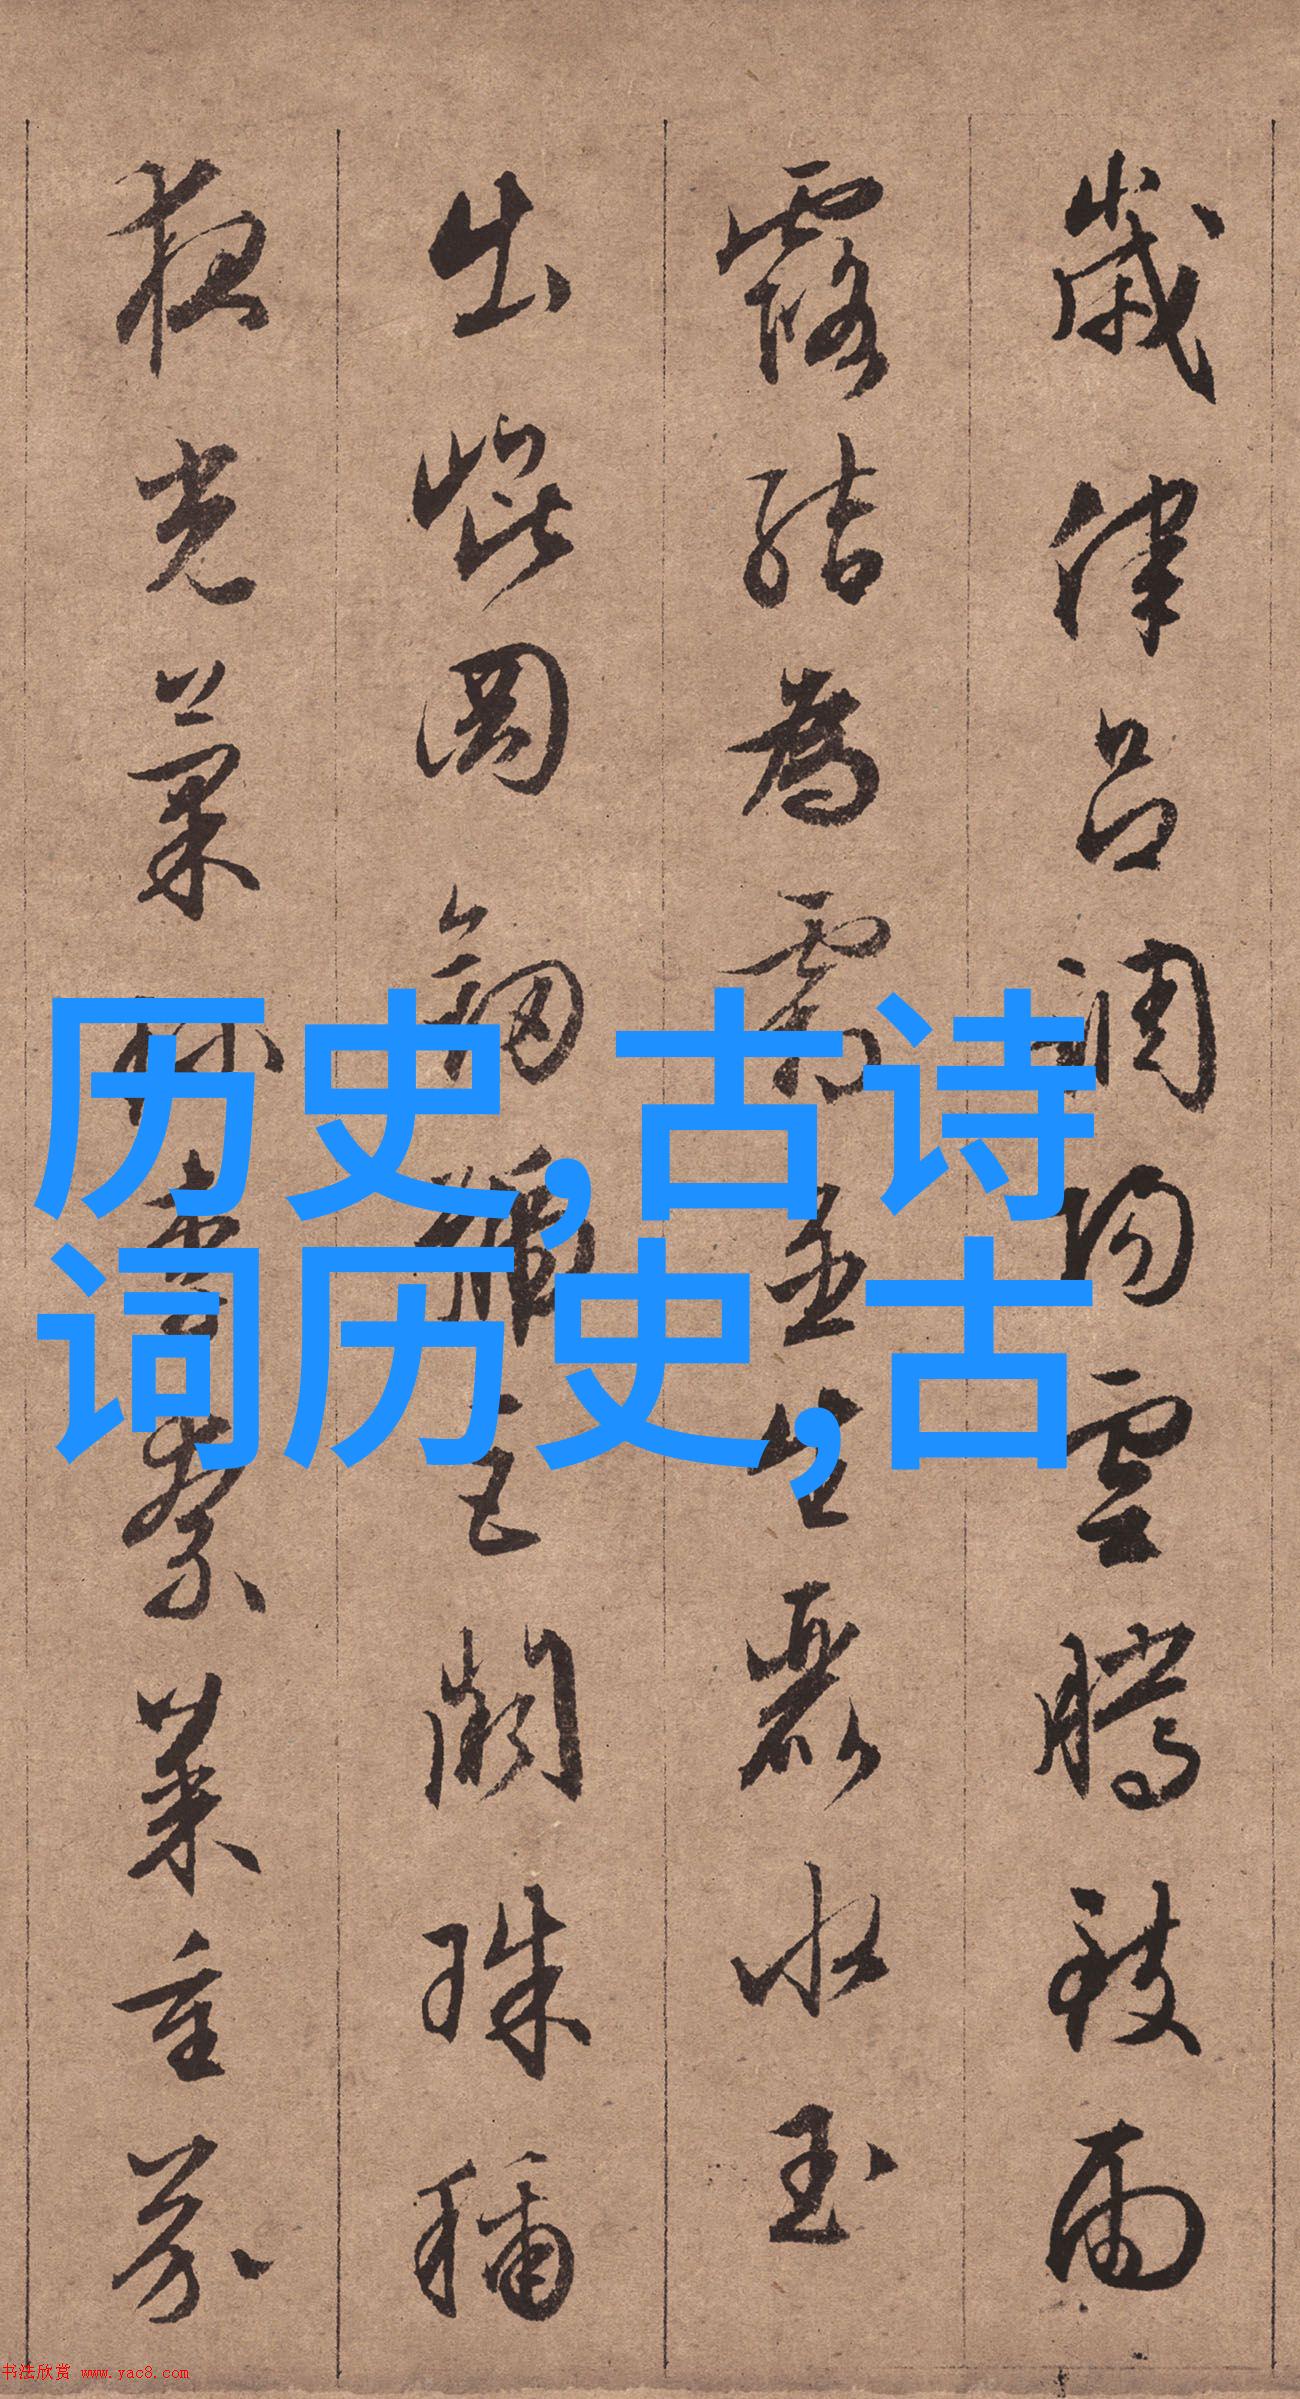 歲律呂調陽雲騰致雨
露結為霜金生麗水玉
出崐岡劎號巨闕珠稱
夜光菓珎李柰菜重芥
历史,古诗
词历史,古
书法欣赏 www.yac8.com